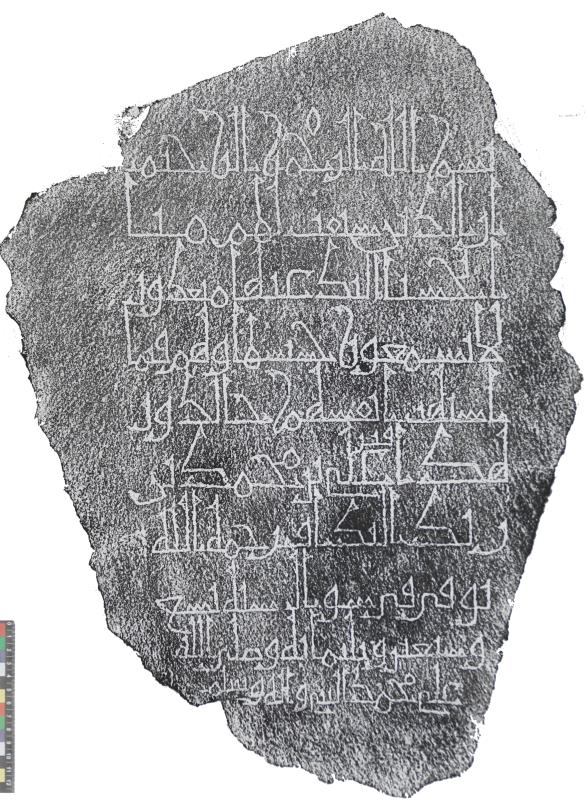 بسم الله الرحمن الرحيم
ان الذين سبقت لهم منا
الحسنى اولئك عنها مبعدون
لا يسمعون حسيسها وهم فيما
اشتهت انفسهم خالدون
هذا قبر علي بن محمد بن
رحمه الله
توفي في شوال سنة
وثلثمائة وصلى الله
على محمد النبي واله وسلم